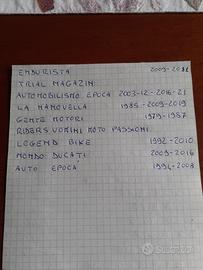 ENDURISTA 2009-2011
TRIAL MAGAZIN
AUTOMOBILISMO EPOCA 2003-12-2016-21
LA MANOVELLA 1985-2009-2019
GENTE MOTORI 1979-1987
RIDERS UOMINI MOTO PASSIONI
LEGEND BIKE 1992-2010
MONDO DUCATI 2009-2016
AUTO EPOCA 1994-2008
subito